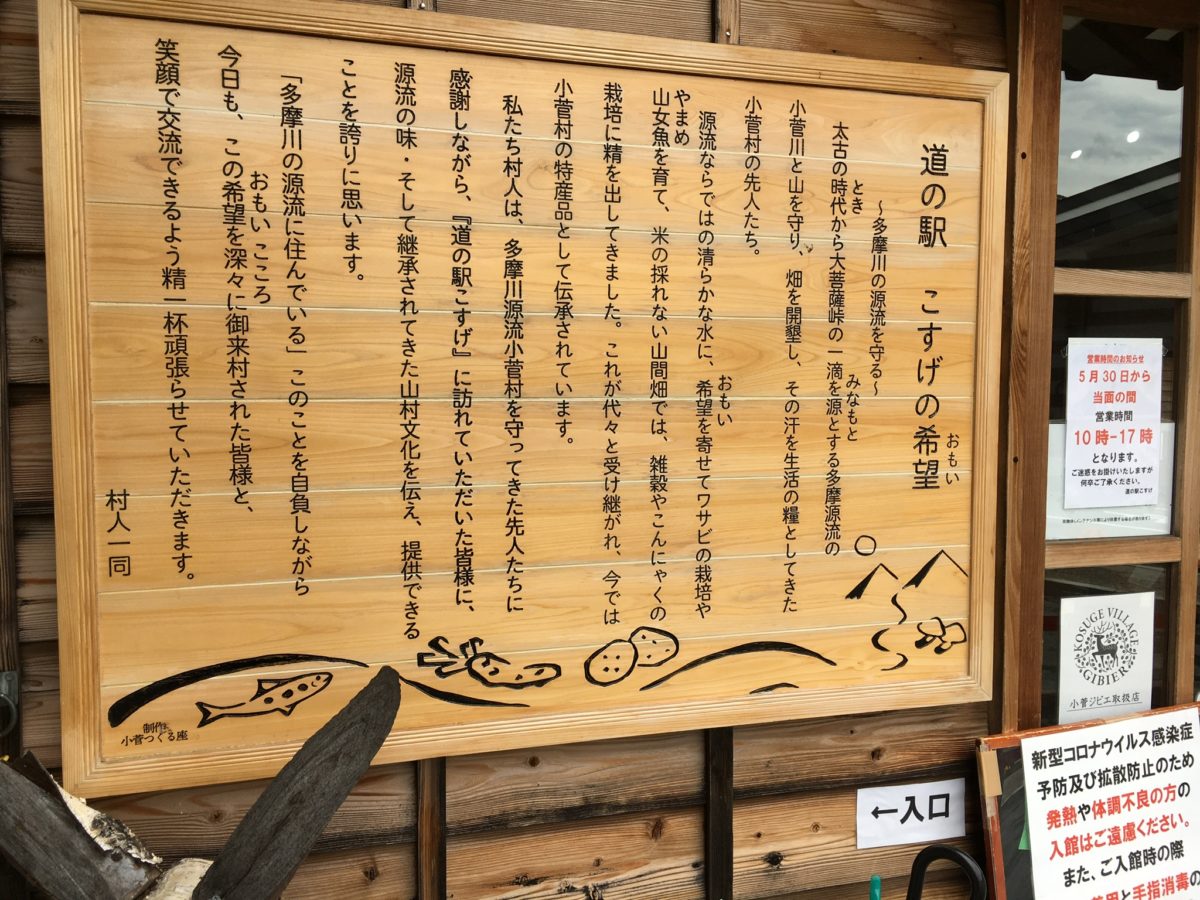 道の駅　こすげの希望
おもい
～多摩川の源流を守る～
太古の時代から大菩薩峠の一滴を源とする多摩源流の
とき
みなもと
小菅川と山を守り、畑を開墾し、その汗を生活の糧としてきた
小菅村の先人たち。
源流ならではの清らかな水に、希望を寄せてワサビの栽培や
おもい
やまめ
山女魚を育て、米の採れない山間畑では、雑穀やこんにゃくの
栽培に精を出してきました。これが代々と受け継がれ、今では
小菅村の特産品として伝承されています。
私たち村人は、多摩川源流小菅村を守ってきた先人たちに
感謝しながら、『道の駅こすげ』に訪れていただいた皆様に、
源流の味・そして継承されてきた山村文化を伝え、提供できる
ことを誇りに思います。
「多摩川の源流に住んでいる」このことを自負しながら
今日も、この希望を深々に御来村された皆様と、
おもい こころ
笑顔で交流できるよう精一杯頑張らせていただきます。
村人一同
制作
小菅つくる座
営業時間のお知らせ
5月30日から
当面の間
営業時間
10時-17時
となります。
ご迷惑をお掛けいたしますが
何卒ご了承ください。
道の駅こすげ
KOSUGE VILLAGE
GIBIER
小菅ジビエ取扱店
←入口
新型コロナウイルス感染症
予防及び拡散防止のため
発熱や体調不良の方の
入館はご遠慮ください。
また、ご入館時の際
と手指消毒の